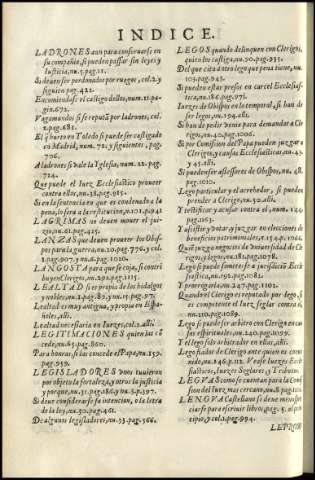 INDICE.
LADRONES aun para conseruarse en
su compañia, si pueden passar sin leyes y
Iusticia, nu.7.pag.11.
Si deuen ser perdonados por ruegos, col.2.y
siguien pag.421.
Encomiendase el castigo dellos, num.21.pa-
gin.672.
Vagamundos si se reputã por ladrones, col.
2.pag.681.
El q̃ hurto en Toledo si puede ser castigado
en Madrid, num.72.y siguientes, pag.
706.
A ladrones si vale la Yglesia, num.22.pag.
714.
Que puede el Iuez Ecclesiastico proueer
contra ellos, nu.38.pag.985.
Si en la sentencia en que es condenado a la
pena, lo sera a la restitucion, n.101.p.941
LAGRIMAS no deuen mouer el juy-
zio, nu.61.pag.425.
LANZAS que deuen proueer los Obis-
pos para la guerra, nu.10.pag.776.y col.
1.pag.907.y nu.2.pag.1010.
LANGOSTA para que se coja, si contri
buyen Clerigos, nu.291.pag.1115.
LEALTAD si es propia de los hidalgos
y nobles, nu.1.pag.89.y nu.15.pag.97.
Lealtad es muy antigua, y propria en Espa-
ñoles, alli.
Lealtad necessaria en Iuezes, col.2.alli.
LEGITIMACIONES quien las cõ
cede, nu.85.pag.860.
Para honras, si las concede el Papa, nu.159.
pag.959.
LEGISLADORES vnos tuuieron
por objeto la fortaleza, y otros la justicia
y porque, nu.35.pag.860.y nu.8.p.397.
Si deue considerarse su intencion, o la letra
de la ley, nu.50.pag.461.
De algunos legisladores, nu.33.pag.566.
LEGOS quando delinquen con Clerigos,
quien los castiga, nu.90.pag.935.
Del que cita a otro lego que pena tiene, nu.
103.pag.943.
Si pueden estar presos en carcel Ecclesias-
tica, nu.186.pag.971.
Iuezes de Obispos en lo temporal, si han de
ser legos, nu.194.alli.
Si han de pedir venia para demandar a Cle
rigos, nu.40.pag.1006.
Si por Comission del Papa pueden juzgar a
Clerigos, y causas Ecclesiasticas, nu.43.
y 45.alli.
Si pueden ser assessores de Obispos, nu.48.
pag.1010.
Lego particular y el acreedor, si pueden prẽder a
Clerigo, nu.50.alli.
Y testificar, y acusar contra el, num.144.
pag.1036.
Y assistir y votar, y juzgar en elecciones de
beneficios patrimoniales, nu.154.p.1040.
Que juzga negocios de Vniuersidad de Cle
rigos, nu.181.pag.1078.
Lego si puede someterse a jurisdiccion Eccle
siastica, nu.191.pag.
Y prorogarla, nu.247.pag.1101.
Quando el Clerigo es reputado por lego, si
es competente el Iuez seglar contra el,
nu.210.pag.1089.
Lego si puede ser arbitro con Clerigo en cau
sas espirituales, nu.240.pag.1099.
Y el lego solo arbitrador en ellas, alli.
Lego fiador de Clerigo ante quien es conue
nido, nu.246.p.111. Vease Iuezes Eccle-
siasticos, Iuezes Seglares y Tributos.
LEGVA como se cuentan para la Comis-
sion del Iuez mas cercano, nu.8.pag.102.
LENGVA Castellana si se deue menos-
preciarse para escriuir libros, pag.5. al prin
cipio, y col.2.pag.994.
LEPROS